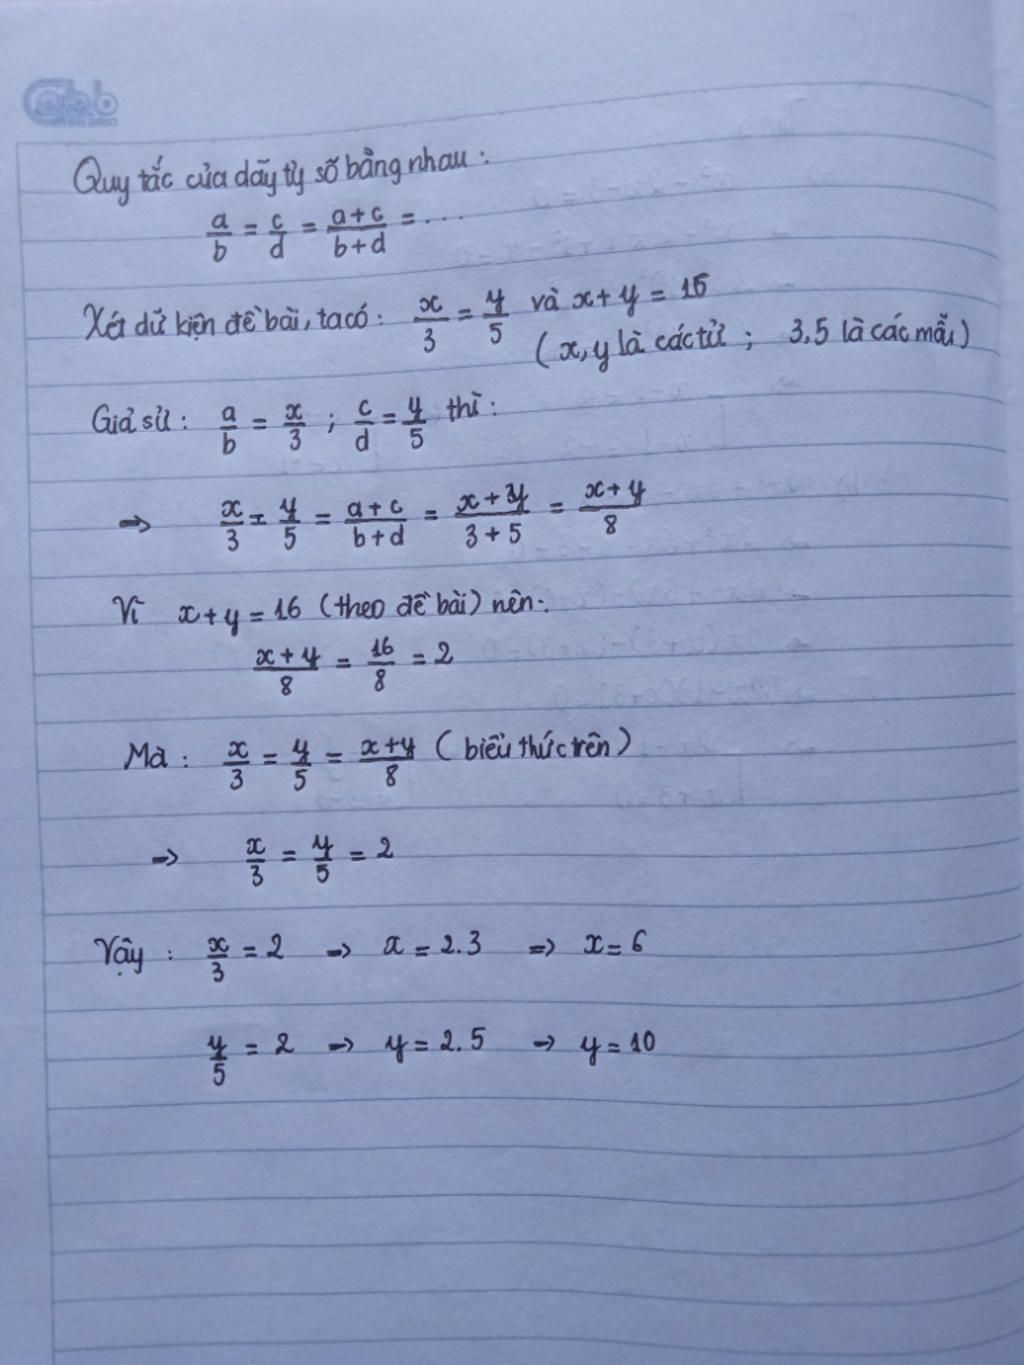 Quy tắc của dãy tỷ số bằng nhau :
a/b = c/d = (a+c)/(b+d) = ...
Xét dữ kiện đề bài, ta có : x/3 = y/5 và x+y = 16
(x, y là các tử ; 3,5 là các mẫu)
Giả sử : a/b = x/3 ; c/d = y/5 thì :
=> x/3 = y/5 = (a+c)/(b+d) = (x+y)/(3+5) = (x+y)/8
Vì x+y = 16 (theo đề bài) nên :
(x+y)/8 = 16/8 = 2
Mà : x/3 = y/5 = (x+y)/8 (biểu thức trên)
=> x/3 = y/5 = 2
Vậy : x/3 = 2 => x = 2.3 => x = 6
y/5 = 2 => y = 2.5 => y = 10